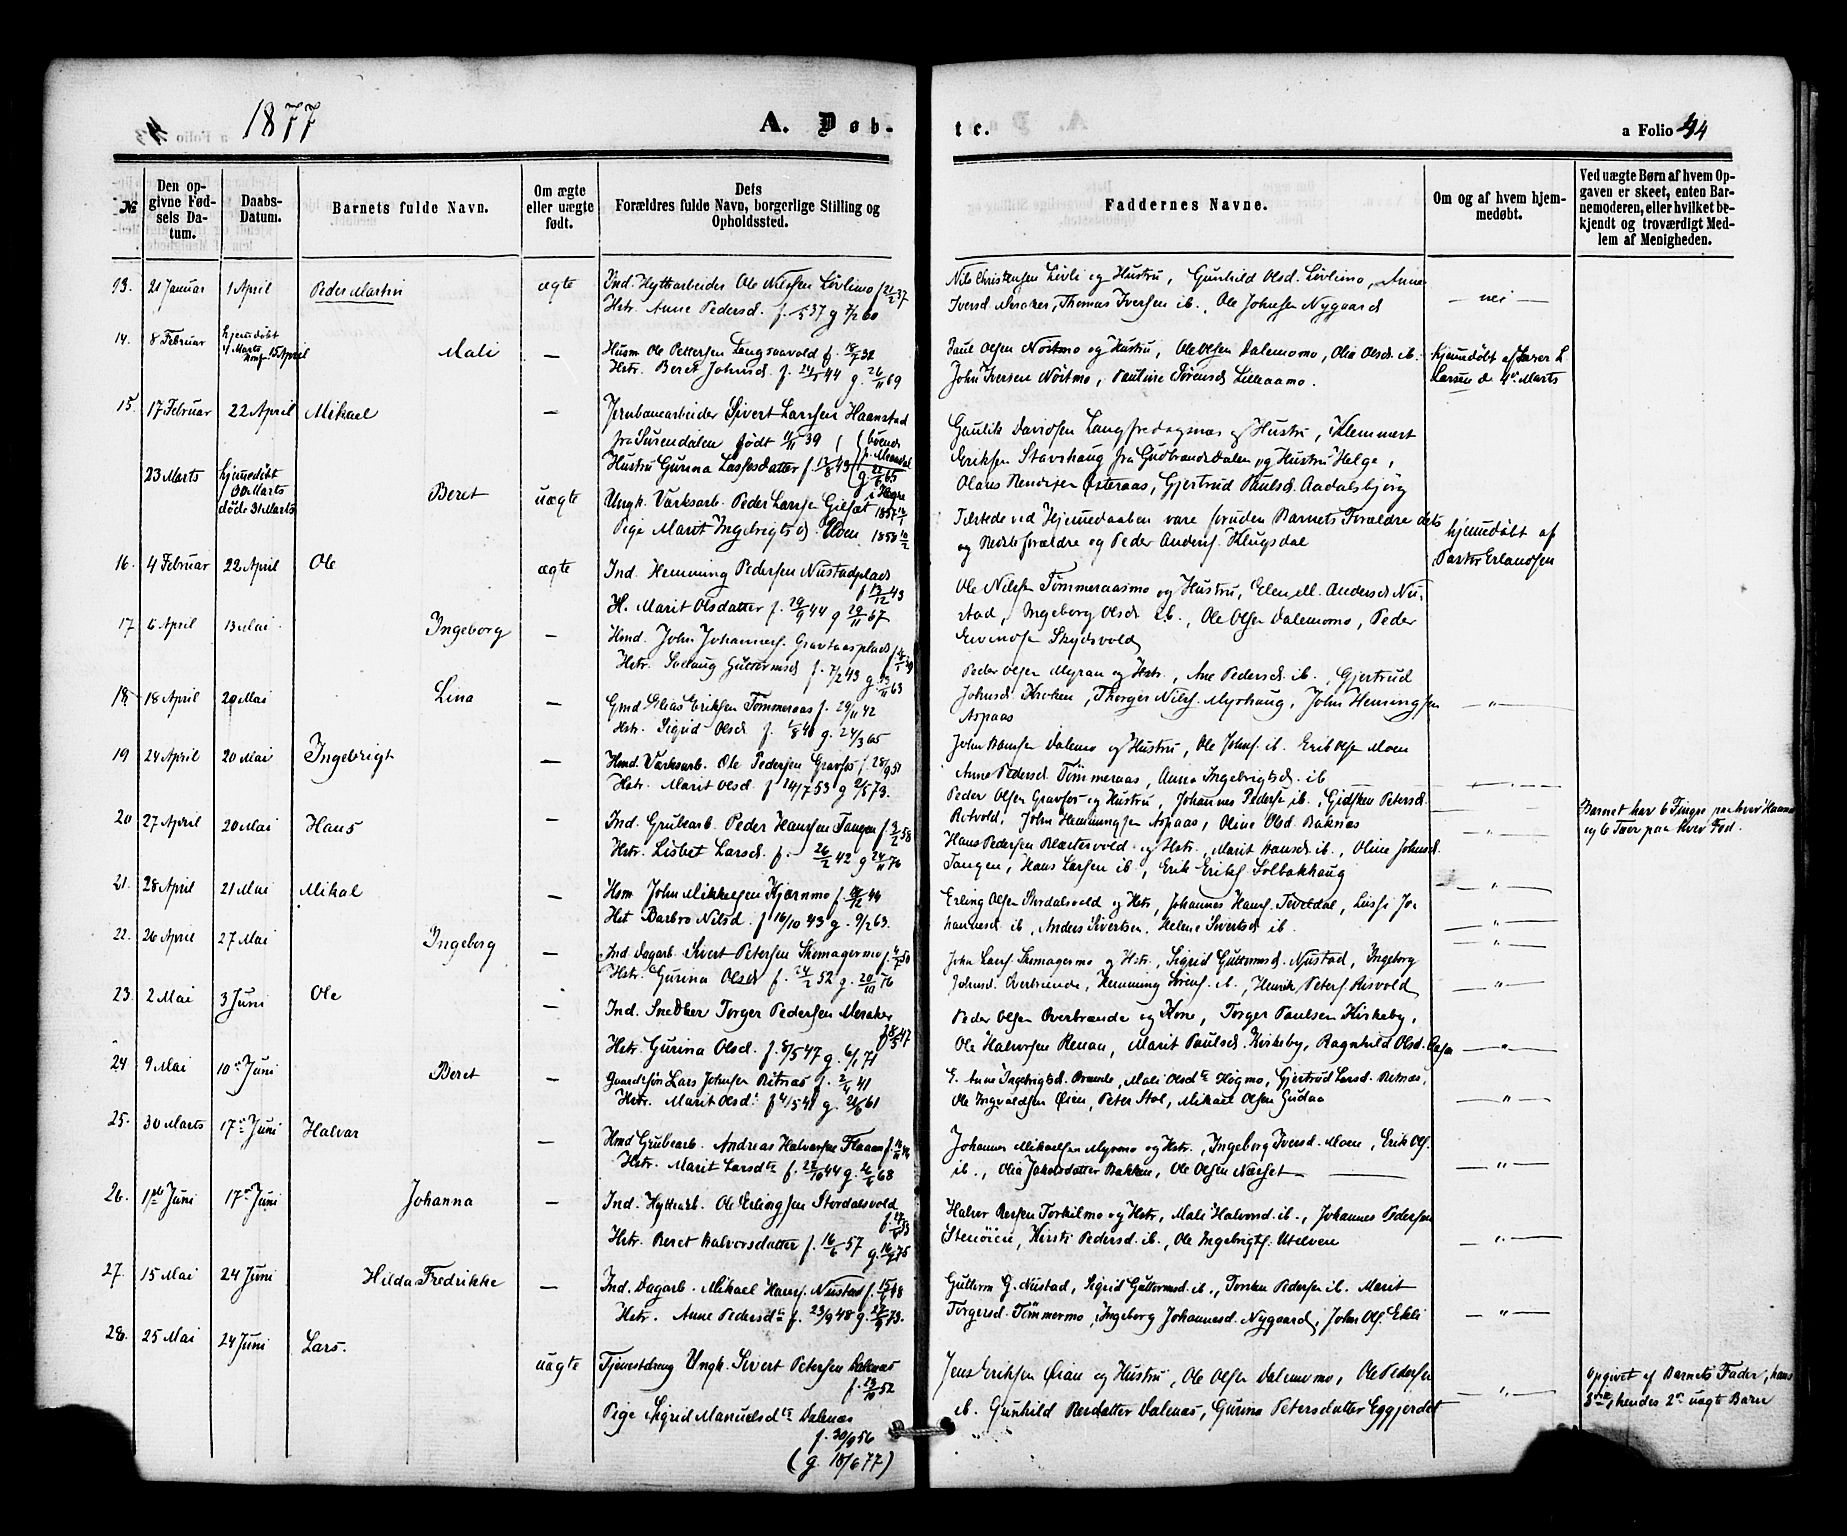 1877
A. Døb-
te.
a Folio 44
№
Den op-
givne Fød-
sels Da-
tum.
Daabs-
Datum.
Barnets fulde Navn.
Om ægte
eller uægte
født.
Dets
Forældres fulde Navn, borgerlige Stilling og
Opholdssted.
Faddernes Navne.
Om og af hvem hjem-
medøbt.
Ved uægte Børn af hvem Op-
gaven er skeet, enten Bar-
nemoderen, eller hvilket be-
kjendt og troværdigt Med-
lem af Menigheden.
13. 21 Januar 1 April Peder Martin ægte Ind. Hyttarbeider Ole Nilssen Lövlimo f 21/2 37
Hstr. Anne Pedersd. f. 5 37 g 7/2 60
Nils Christensen Livli og Hustru, Gunhild Olsd. Lövlimo, Anne
Iversd. Meraker, Thomas Iversen ib. Ole Johnsen Nygaard
nei
14. 8 Februar hjemmedøbt
4 Marts
Konf. 15 April
Mali — Husm Ole Pettersen Langsaavold f.
Hstr. Beret Johnsd. f. 24/5 44 g. 26/11 69
Paul Olsen Nöstmo og Hustru, Ole Olsen Dalemomo, Olia Olsd. ib.
John Iversen Nöstmo, Pauline Sörensd. Lilleaamo.
hjemmedöbt af Lærer L
Larsen d. 4de Marts
15. 17 Februar 22 April Mikael — Jernbanearbeider Sivert Larssen Haanstad
fra Surendalen født 11/11 39
Hustru Gurina Lassesdatter f. 13/8 43
Gaulik Davidsen Langfredagsnæs og Hustru, Klemmert
Eriksen Stavshaug fra Gudbrandsdalen og Hustru Helge,
Olaus Rendesen Österaas, Gjertrud Paulsd. Aadalsbjörg
23 Marts hjemmedöbt
30 Marts
døde 31 Marts
Beret uægte Ungk. Værksarb. Peder Larssen Gilset 1857
Pige Marit Ingebrigtsd. Floen 1858 10/2
Tilstede ved Hjemmedaaben vare foruden Barnets Forældre dets
og Bedsteforældre og Peder Anders. Klugsdal
hjemmedöbt af
Pastor Erlandsen
16. 4 Februar 22 April Ole ægte Ind. Hemming Pedersen Nustadplads
f 13/12 43
H. Marit Olsdatter f. 29/9 44 g 29/11 67
Ole Nilssen Tömmeraasmo og Hustru, Elen M. Andersd. Nu-
stad, Ingeborg Olsd. ib., Ole Olsen Dalemomo, Peder
Evensen Skydsvold
17 6 April 13 Mai Ingeborg — Hmd. John Johannes. Gravaasplads
Hstr. Solaug Guttormsd. f. 7/2 43 g 63
Peder Olsen Myran og Hstr., Ane Pedersd. ib., Gjertrud
Johnsd. Kroken, Thorger Nils. Myrhaug, John Hemingsen
Aspaas
18 18 April 20 Mai Lina — Gmd Elias Eriksen Tömmeraas f. 29/11 42
Hstr. Sigrid Olsd. f. 1/8 40 g. 24/3 65
John Hansen Dalemo og Hustru, Ole Johns. ib. Erik Olsen Moen
Anne Pedersd. Tömmeraas, Anne Ingebrigtsd. ib
19 24 April 20 Mai Ingebrigt — Hmd. Værksarb. Ole Pedersen Gravfos f. 28/9 51
Hstr. Marit Olsd. f 14/7 53 g 2/5 73.
Peder Olsen Gravfos og Hustru, Johannes Pederse ib., Gidsken Petersd.
Rotvold, John Hemmingsen Aspaas, Oline Olsd. Baknæs
20 27 April 20 Mai Hans — Ind. Grubearb. Peder Hanssen Tangen f 3/2 58
Hstr. Lisbet Larsd. f. 26/2 42 g 24/11 76
Hans Pedersen Blættesvold og Hstr., Marit Hansd. ib., Oline Johnsd.
Tangen, Hans Larsen ib., Erik Eriks. Solbakhaug
Barnet har 6 Fingre paa hver Haand
og 6 Tæer paa hver Fod.
21. 28 April 21 Mai Mikal — Hsm John Mikkelsen Kjærnmo f. 44
Hst Barbro Nilsd. f 16/10 43 g. 9/2 63.
Erling Olsen Stordalsvold og Hstr, Johannes Hans. Teveldal, Lisse Jo-
hannesd. ib, Anders Sivertsen, Helene Sivertsd. ib.
22. 26 April 27 Mai Ingeborg — Ind Dagarb. Sivert Petersen Skomagermo f. 50
Hstr. Gurina Olsd. f. 24/2 52 g. 20/11 76
John Lars. Skomagermo og Hstr., Sigrid Guttormsd. Nustad, Ingeborg
Johnsd. Overbrænde, Hemming Sörens. ib., Henrik Peters. Risvold
23. 2 Mai 3 Juni Ole — Ind. Snedker Torger Pedersen Meraker
f 18/5 47
Hstr. Gurina Olsd. f. 8/5 47 g. 6/1 71
Peder Olsen Overbrænde og Kone, Torger Paulsen Kirkeby,
Ole Halvorsen Renaa, Marit Paulsd. Kirkeby, Ragnhild Olsd.
24 9 Mai 10de Juni Beret — Gaardsøn Lars Johnsen Ritnæs f. 2/6 41
Hstr. Marit Olsd. f 4/5 41 g. 21/6 61
E. Anne Ingebrigtsd. Brænde, Mali Olsdtr Högmo, Gjertrud Larsd. Ritnæs,
Ole Ingvaldsen Öien, Peter Stol, Mikael Olsen Gudaa
25. 30 Marts 17de Juni Halvar — Hmd Grubearb. Andreas Halvorsen Flaaen
Hstr. Marit Larsdtr f. 22/10 44 g. 68
Johannes Mikaelsen Myrmo og Hstr., Ingeborg Iversd. Moen, Erik Ols.
ib., Olia Jakobsdatter Bakken, Ole Olsen Næsset
26. 1ste Juni 17de Juni Johanna — Ind. Hyttarb. Ole Erlingsen Stordalsvold
Hstr. Beret Halvorsdatter f. 16/6 57 g. 75
Halvor Bersen Torkilmo og Hstr, Mali Halvorsd. ib., Johannes Pedersen
Stenöien, Kirsti Pedersd. ib., Ole Ingebrigts. Utelven
27. 15 Mai 24 Juni Hilda Fredrikke — Ind. Dagarb. Mikael Hans. Nustad f. 48
Hstr. Anne Pedersdtr f. 23/9 48 g. 73.
Guttorm G. Nustad, Sigrid Guttormsd. ib., Torsten Pedersen ib. Marit
Torgersd. Tömmermo, Ingeborg Johannesd. Nygaard, John Ols. Ekli
28. 25 Mai 24 Juni Lars. uægte Tjenestdreng Ungk. Sivert Petersen Dalnæs
f. 52
Pige Sigrid Manuelsdtr Dalnæs
f. 30/9 56
(g. 18/6 77)
Jens Eriksen Öian og Hustru, Ole Olsen Dalemomo, Ole Pedersen
ib. Gunhild Bersdatter Dalnæs, Gurine Petersdatter Eggjerdet
Opgivet af Barnets Fader, hans
3die, hendes 2det uægte Barn